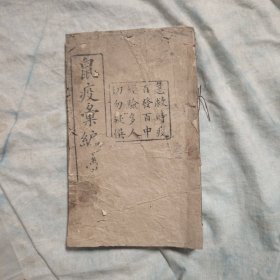 急救時疫
百發百中
經驗多人
切勿疑
鼠疫彙編